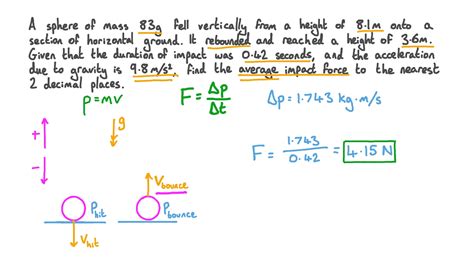 A sphere of mass 83g fell vertically from a height of 8.1m onto a
section of horizontal ground. It rebounded and reached a height of 3.6m.
Given that the duration of impact was 0.42 seconds, and the acceleration
due to gravity is 9.8m/s², find the average impact force to the nearest
2 decimal places.
p=mv
F = Δp/Δt
Δp = 1.743 kg·m/s
+
g
F = 1.743/0.42 = 4.15N
-
V bounce
P hit
P bounce
V hit